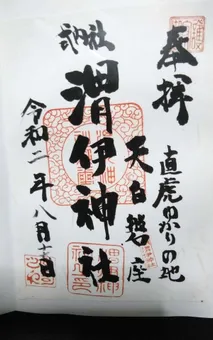 奉拝
直虎ゆかりの地
天白磐座
式内社
渭伊神社
令和二年八月十日